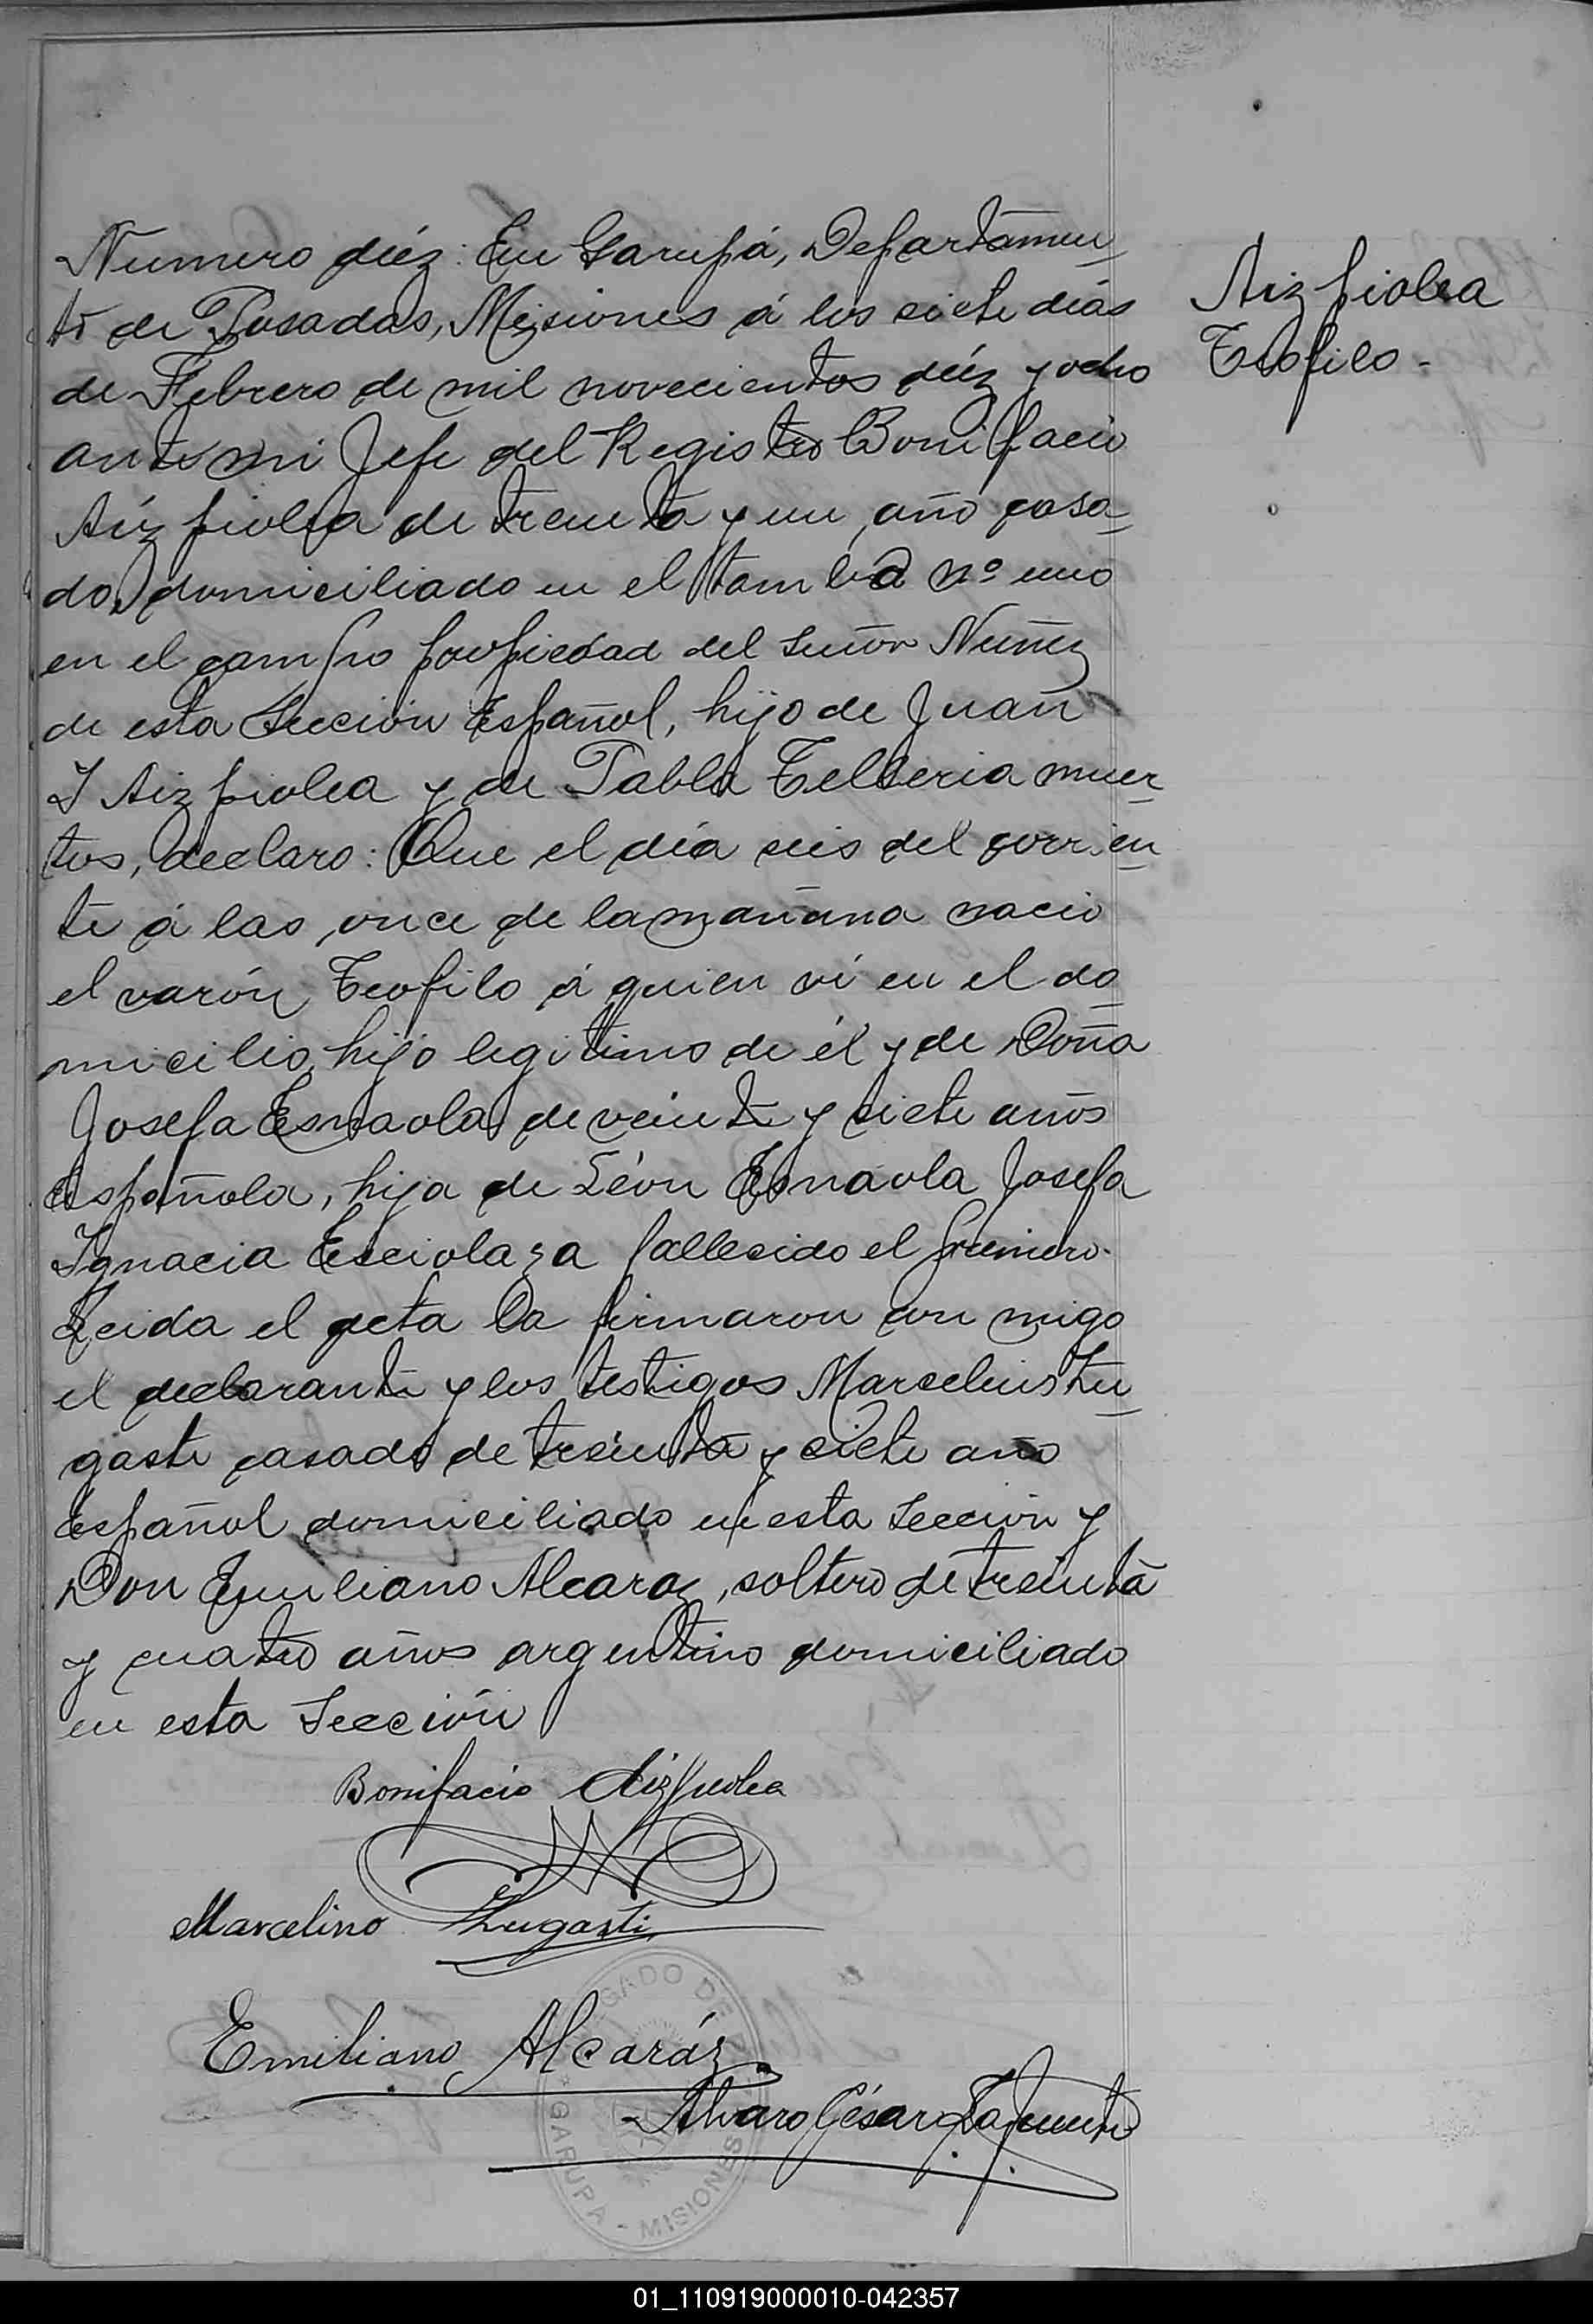 Numero diéz: En Garupá, Departamen_
to de Posadas, Misiones á los siete días
de Febrero de mil novecientos diéz y ocho
ante mi Jefe del Registro Bonifacio
Aizpiolea de treinta y un año casa_
do, domiciliado en el tambo nº uno
en el campo propiedad del Señor Nuñez
de esta Sección Español, hijo de Juan
I Aizpiolea y de Pabla Telleria muer_
tos, declaro: Que el día seis del corrien_
te á las once de la mañana nació
el varón Teofilo á quien ví en el do_
micilio, hijo legitimo de él y de Doña
Josefa Esnaola de veinte y siete años
Española, hija de León Esnaola Josefa
Ignacia fallecido el primero.
Leida el acta la firmaron con migo
el declarante y los testigos Marcelino Lu_
gasti casado de treinta y siete año
Español domiciliado en esta Sección y
Don Emiliano Alcaraz, soltero de treinta
y cuatro años argentino domiciliado
en esta Sección
Aizpiolea
Teofilo -
Bonifacio Aizpiolea
Marcelino Lugasti
Emiliano Alcaráz
Alvaro César Lafuente
GADO DE
GARUPA - MISIONES
01_110919000010-042357